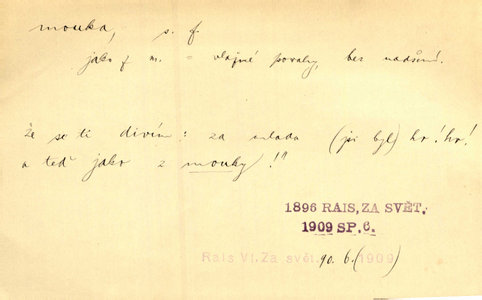 mouka, s. f
jako z m. = vlažné povahy, bez nadšení.
že se ti divím: za mlada (jsi byl) hr! hr!
a teď jako z mouky!"
1896 RAIS, ZA SVĚT.
1909 SP. 6.
Rais VI. Za svět. 90. 6. (1909)